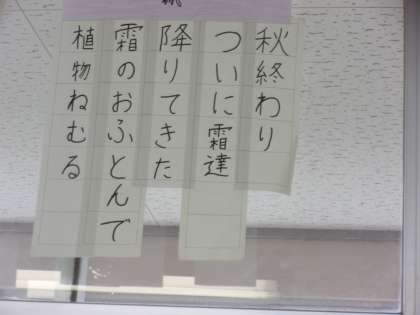 秋終わり
ついに霜達
降りてきた
霜のおふとんで
植物ねむる